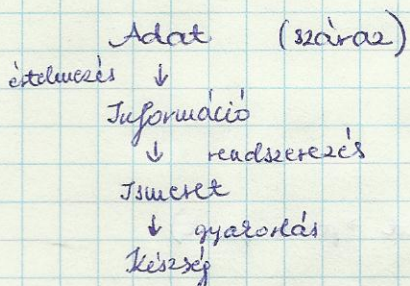 Adat (száraz)
értelmezés ↓
Információ
↓ rendszerezés
Ismeret
↓ gyakorlás
Készség